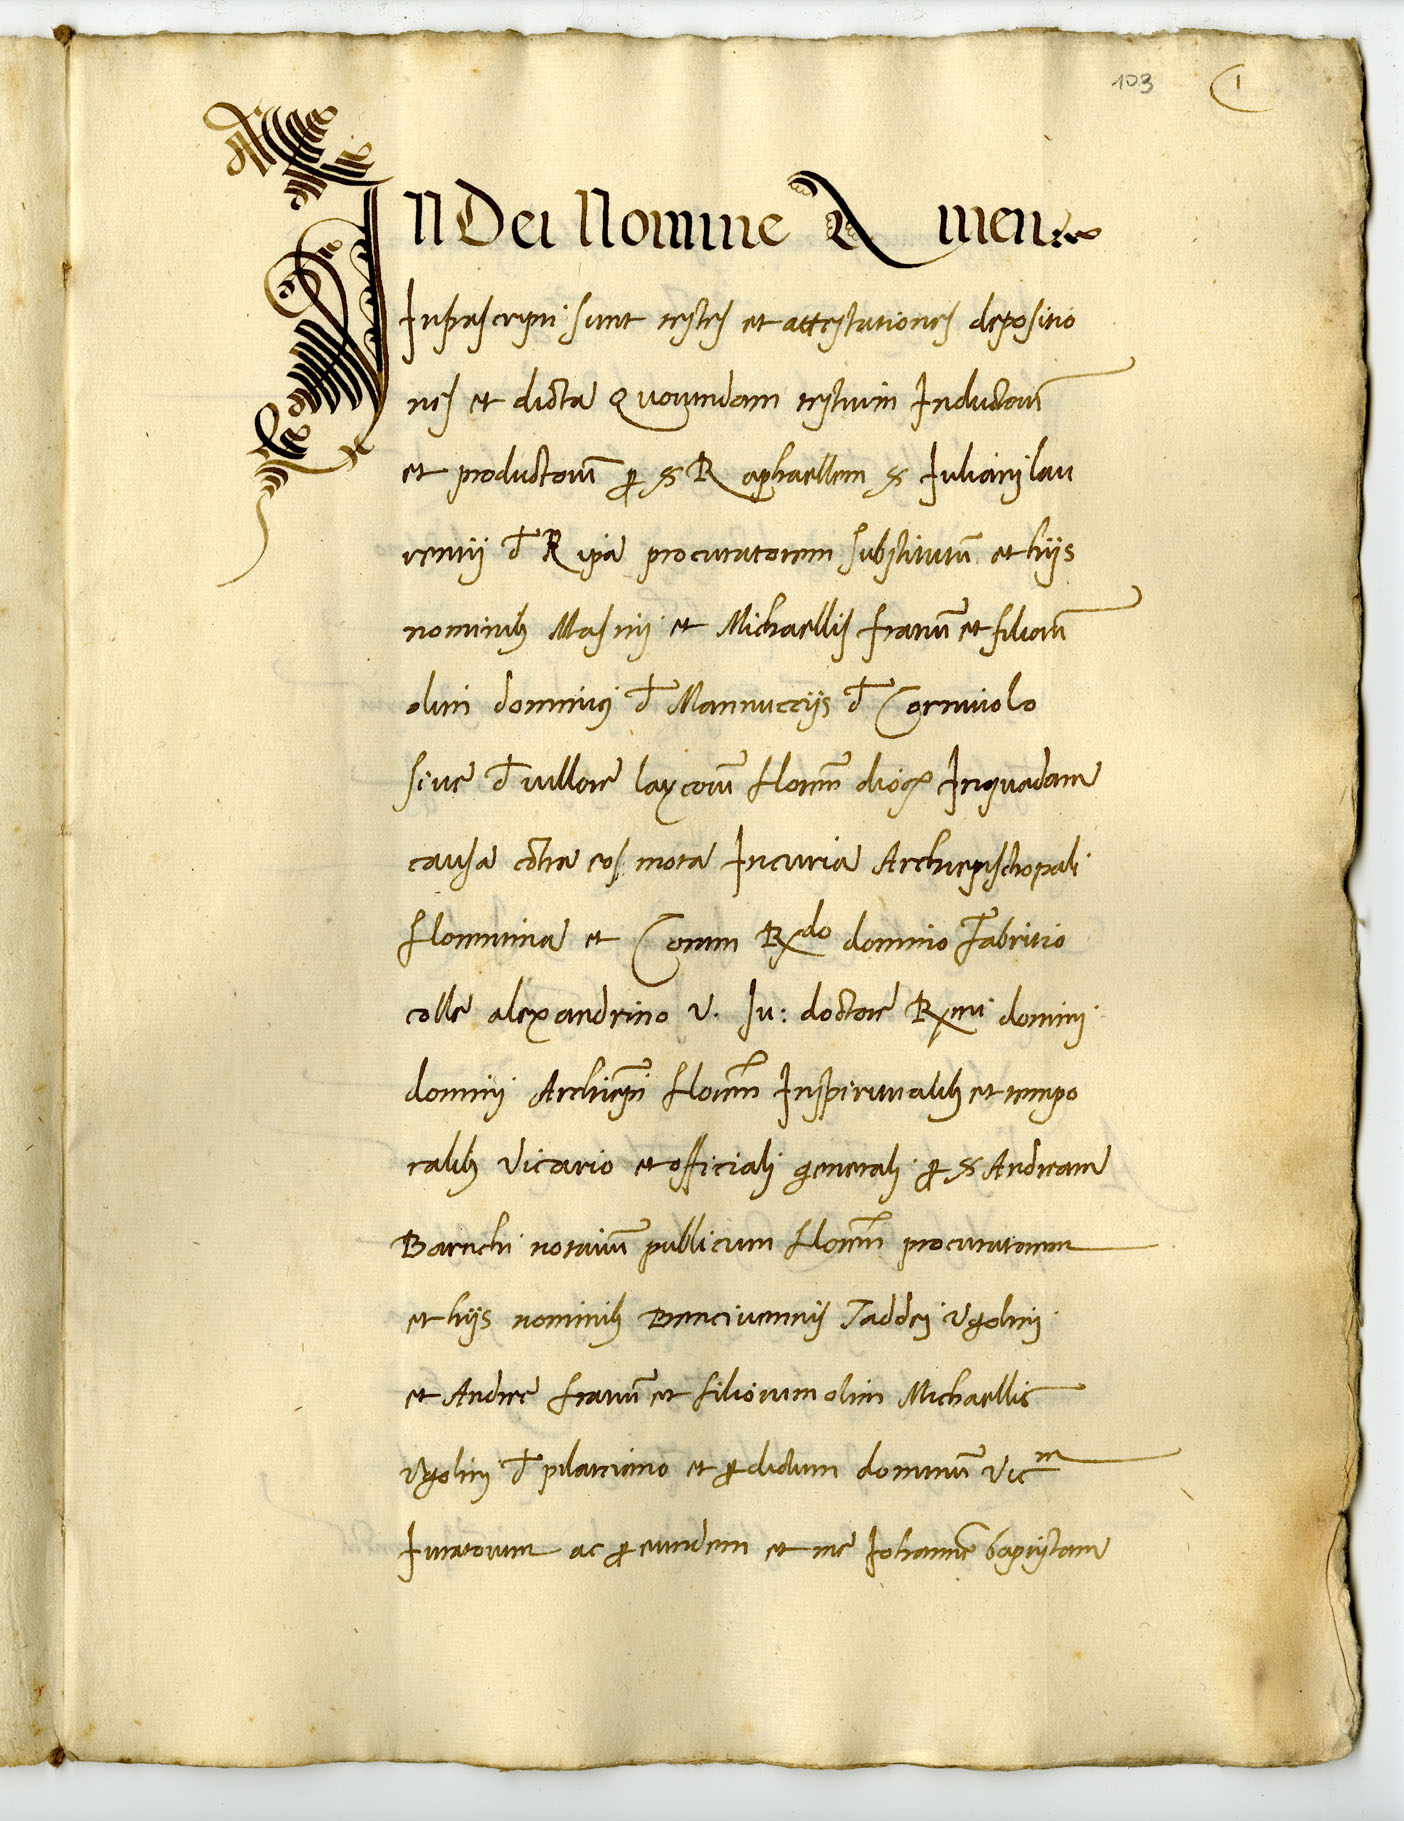 103
1
IN Dei Nomine Amen
Infrascripti sunt testes et attestationes depositio
nes et dicta Quorundam testium Inductorũ
et productorũ ꝑ S Raphaellem S Iuliani lau
rentij đ Ripa procuratorem substitutũ et hijs
nominibȝ Masnij et Michaellis fratrũ et filiorũ
olim dominici đ Mannuccijs đ Corniuolo
siue đ uillore laycorũ floreñ dioc̃ Inquadam
causa cõtra eos mota Incuria Archiepischopali
florentina et Coram Rdo domino Fabritio
colle alexandrino V. Iu: doctore Rmi domini
domini Archiep̃i floreñ Inspiritualibȝ et tempo
ralibȝ Vicario et officiali generali ꝑ S Andream
Baruchi notariũ publicum floreñ procuratorem
et hijs nominibȝ Benciuennis Taddei Vgolini
et Andree fratrũ et filiorum olim Michaellis
Vgolini đ et ꝑ dictum dominũ Vicm
Iuratorum ac ꝑ eundem et me Iohannẽ baptistam